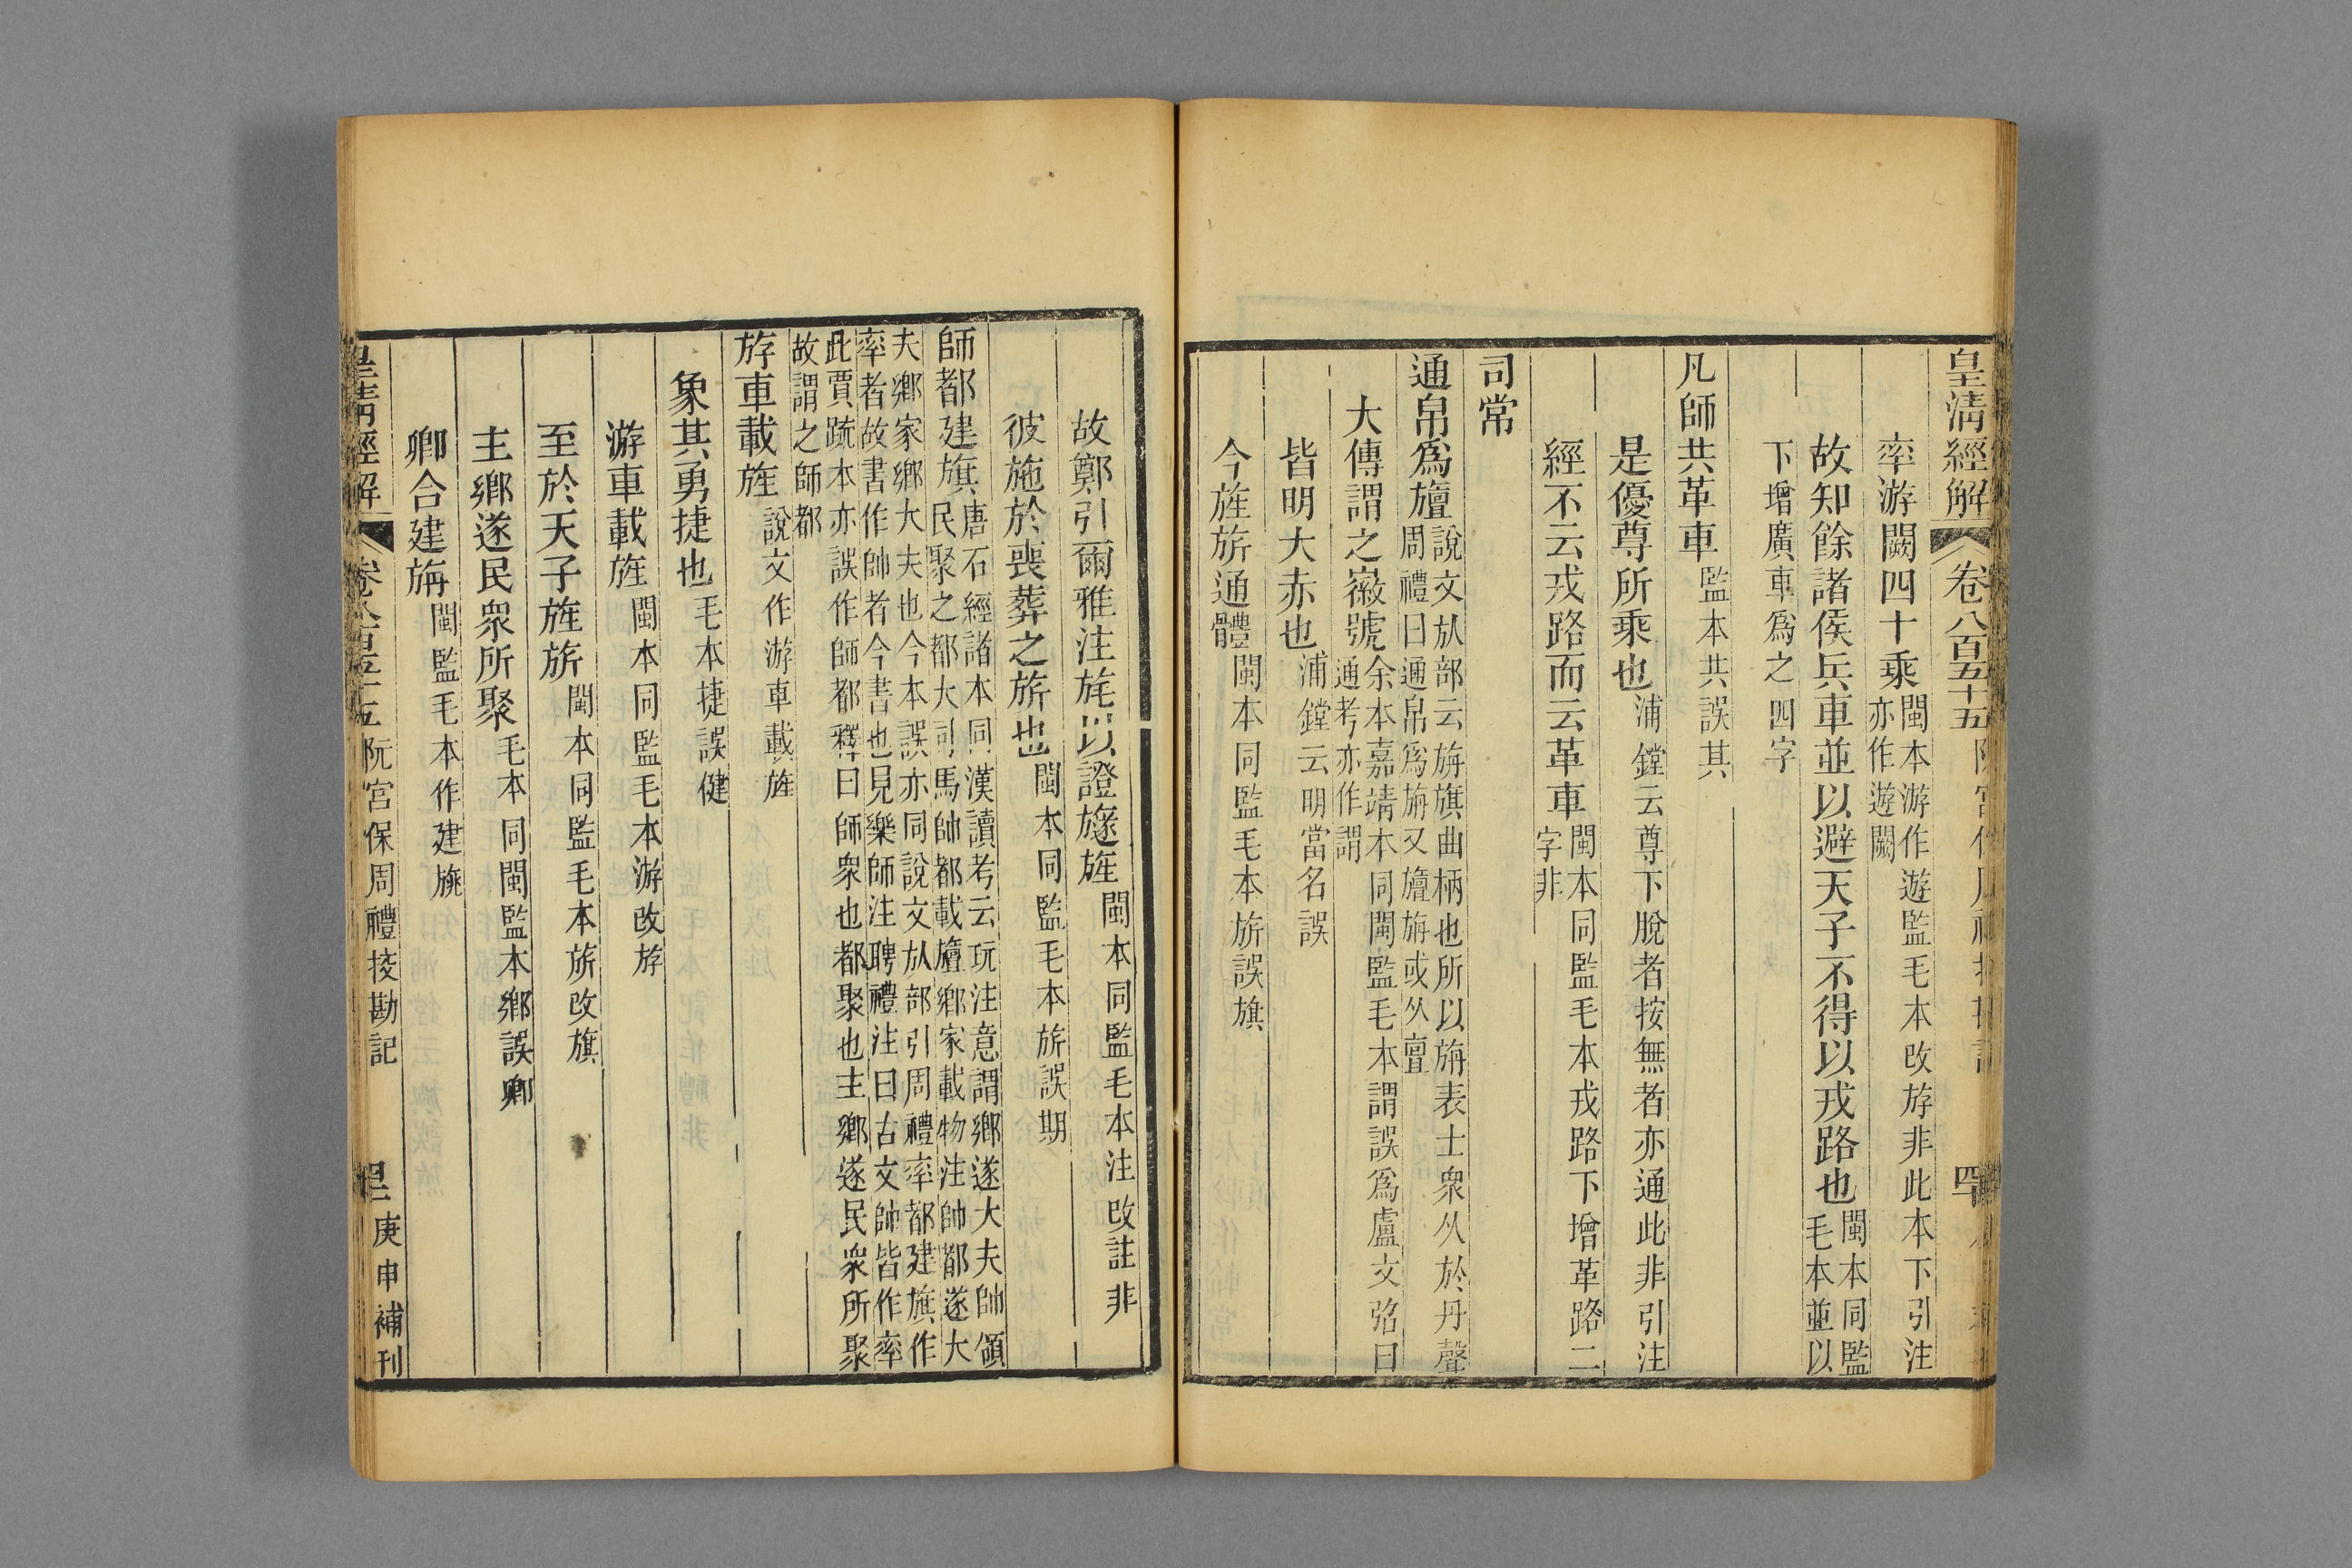 皇清經解 卷八百五十五
率游闕四十乘閩本游作遊監毛本改斿非此本下引注
亦作遊闕
故知餘諸侯兵車並以避天子不得以戎路也閩本同監
毛本並以
下增廣車爲之四字
凡師共革車監本共誤其
是優尊所乘也浦鏜云尊下脫者按無者亦通此非引注
經不云戎路而云革車閩本同監毛本戎路下增革路二
字非
司常
通帛爲旜說文㫃部云旃旗曲柄也所以旃表士衆从㫃丹聲
周禮曰通帛爲旃又旜旃或从亶
大傳謂之徽號余本嘉靖本同閩監毛本謂誤爲盧文弨曰
通考亦作謂
皆明大赤也浦鏜云明當名誤
今旌旂通體閩本同監毛本旂誤旗
故鄭引爾雅注旄以證旞旌閩本同監毛本注改註非
彼施於喪葬之旂也閩本同監毛本旂誤期
師都建旗唐石經諸本同漢讀考云玩注意謂鄉遂大夫帥領
民聚之都大司馬帥都載旜鄉家載物注帥都遂大
夫鄉家鄉大夫也今本誤亦同說文㫃部引周禮率都建旗作
率者故書作帥者今書也見樂師注聘禮注曰古文帥皆作率
此賈疏本亦誤作師都釋曰師衆也都聚也主鄉遂民衆所聚
故謂之師都
斿車載旌說文作游車載旌
象其勇捷也毛本捷誤健
游車載旌閩本同監毛本游改斿
至於天子旌旂閩本同監毛本旂改旗
主鄉遂民衆所聚毛本同閩監本鄉誤卿
卿合建旃閩監毛本作建旐
皇清經解 卷八百五十五 阮宮保周禮挍勘記 庚申補刊